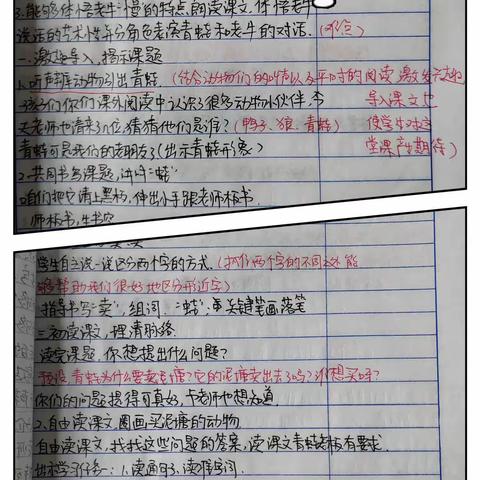 3.能够体悟老牛慢的特点,朗读课文,体悟老牛
说话的艺术性并分角色表演青蛙和老牛的对话.(难点)
一.激趣导入,揭示课题
1.听声猜动物引出青蛙.(结合动物们的叫声以及平时的阅读激发兴趣
孩子们你们课外阅读中认识了很多动物小伙伴,今 导入课文也
天老师也请来了几位,猜猜他们是谁?(鸭子、狼、青蛙) 使学生对这
青蛙可是我们的老朋友了(出示青蛙形象) 堂课产生期待)
2.共同书写课题,认识"蛙"
咱们把它请上黑板,伸出小手跟老师板书.
师板书,生书空
学生自主说一说区分两个字的方式.(抓住两个字的不同之处能
够帮助我们很好地区分形近字)
指导书写"卖",组词."蛙",重关键笔画落笔
二.初读课文,理清脉络
读完课题,你想提出什么问题?
预设:青蛙为什么要卖泥塘?它的泥塘卖出去了吗?谁想买呀?
你们的问题提得可真好,卡老师也想知道.
2.自由读课文,圈画买泥塘的动物.
自由读课文,找找这些问题的答案,读课文青蛙老板有要求.
出示学习任务:1.读通句子、读准字词.